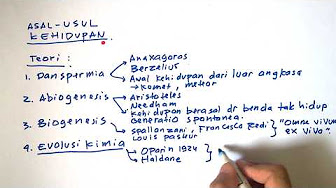 ASAL-USUL
KEHIDUPAN.
Teori :
1. Danspermia
Anaxagoros
Berzelius
Awal kehidupan dari luar angkasa
→ komet, meteor
2. Abiogenesis
Aristoteles
Needham
kehidupan berasal dr benda tak hidup
Generatio spontanea.
3. Biogenesis
spallanzani, Francesco Redi
Louis pasteur
"Omne vivum
ex vivo".
4. Evolusi kimia
Oparin 1924
Haldane